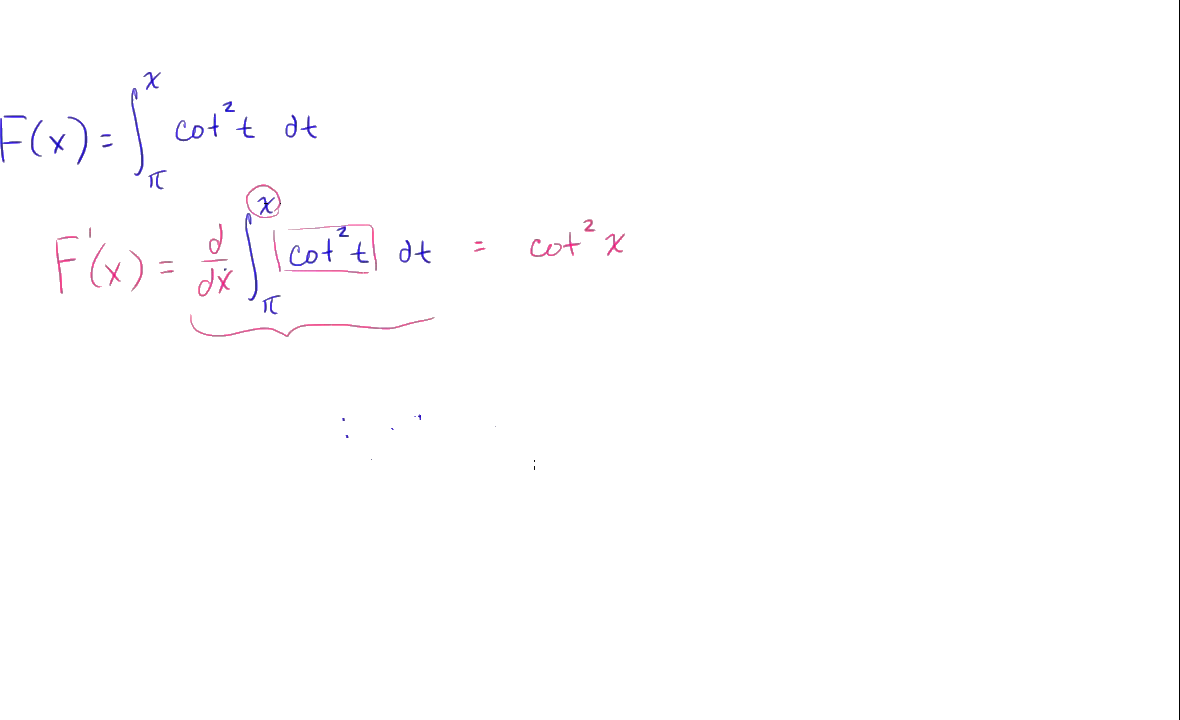 F(x) = ∫_π^x cot² t dt
F'(x) = d/dx ∫_π^x cot² t dt = cot² x